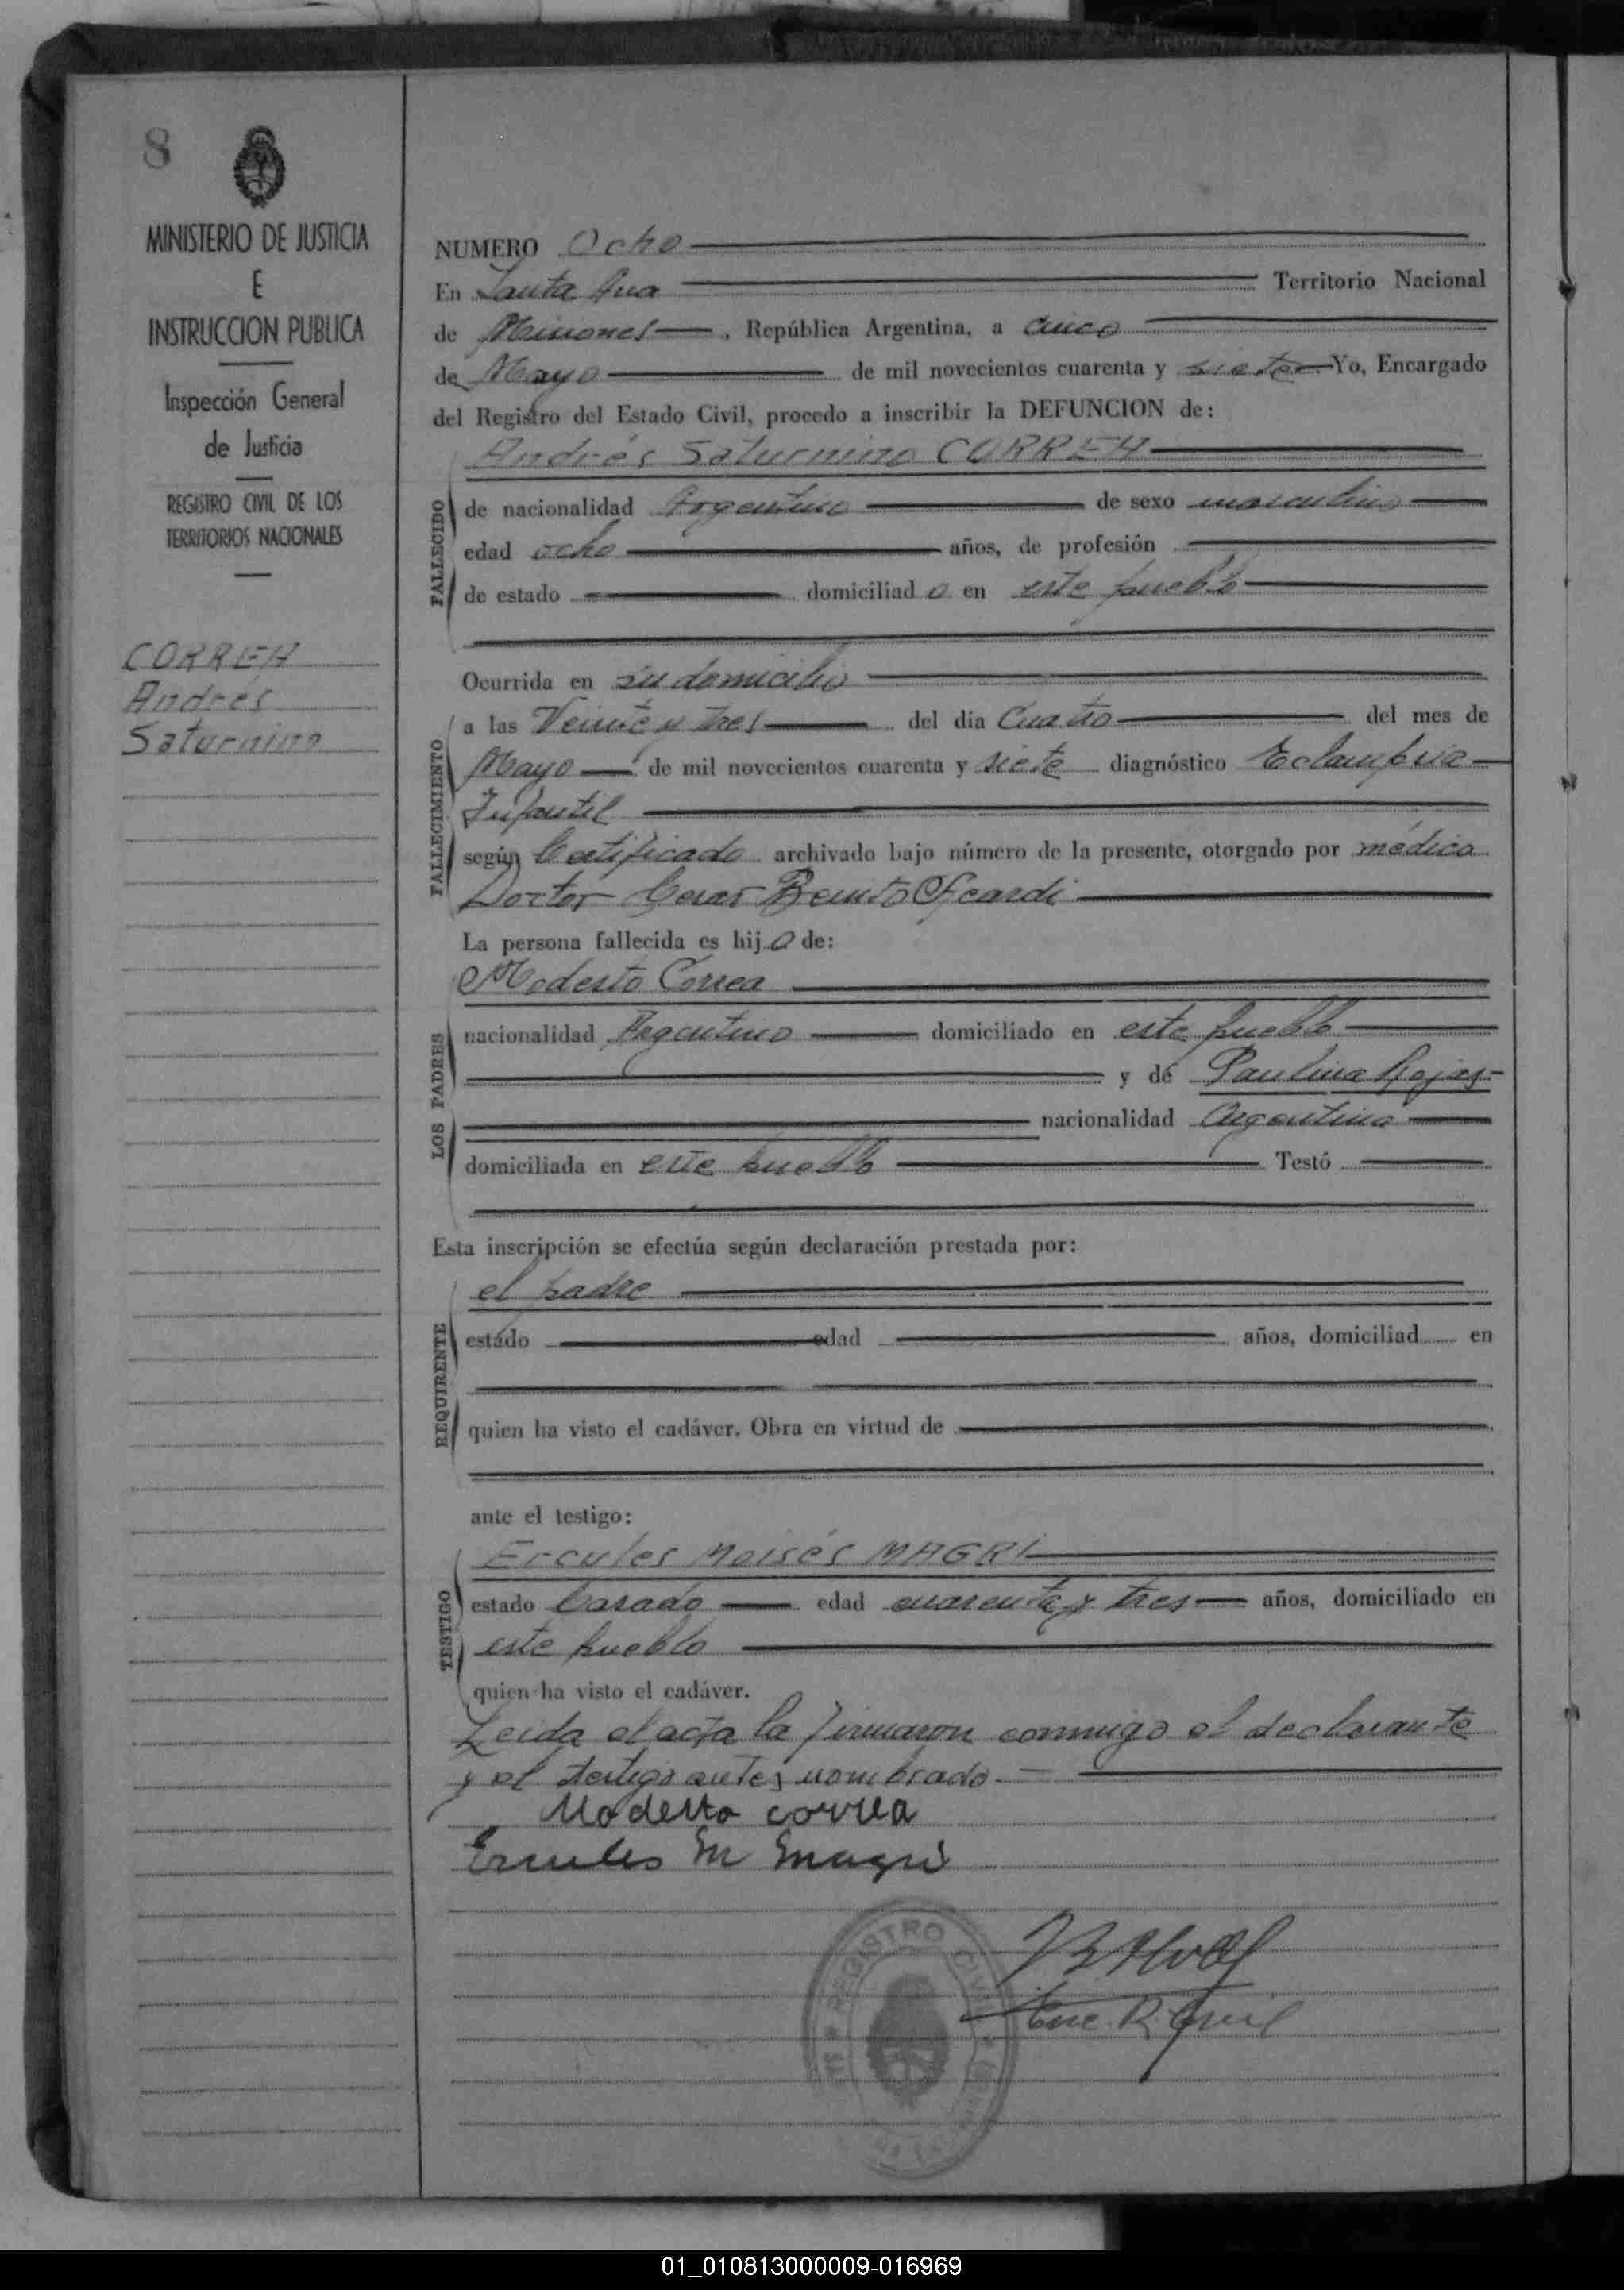 8
MINISTERIO DE JUSTICIA
E
INSTRUCCION PUBLICA
Inspección General
de Justicia
REGISTRO CIVIL DE LOS
TERRITORIOS NACIONALES
CORREA
Andrés
Saturnino
NUMERO Ocho
En Santa Ana Territorio Nacional
de Misiones, República Argentina, a cinco
de Mayo de mil novecientos cuarenta y siete Yo, Encargado
del Registro del Estado Civil, procedo a inscribir la DEFUNCION de:
Andrés Saturnino CORREA
FALLECIDO
de nacionalidad Argentino de sexo masculino
edad ocho años, de profesión
de estado domiciliado en este pueblo
Ocurrida en su domicilio
FALLECIMIENTO
a las Veinte y tres del día Cuatro del mes de
Mayo de mil novecientos cuarenta y siete diagnóstico Eclampsia
Infantil
según Certificado archivado bajo número de la presente, otorgado por médico
Doctor Cesar Benito
La persona fallecida es hijo de:
Modesto Correa
LOS PADRES
nacionalidad Argentino domiciliado en este pueblo
y de Paulina Rojas
nacionalidad Argentina
domiciliada en este pueblo Testó
Esta inscripción se efectúa según declaración prestada por:
el padre
REQUIRENTE
estado edad años, domiciliad en
quien ha visto el cadáver. Obra en virtud de
ante el testigo:
Ercules Moisés MAGRI
TESTIGO
estado Casado edad cuarenta y tres años, domiciliado en
este pueblo
quien ha visto el cadáver.
Leida el acta la firmaron conmigo el declarante
y el testigo antes nombrado.
Modesto correa
Ercules M Magri
REGISTRO CIVIL
Enc. R. Civil
01_010813000009-016969